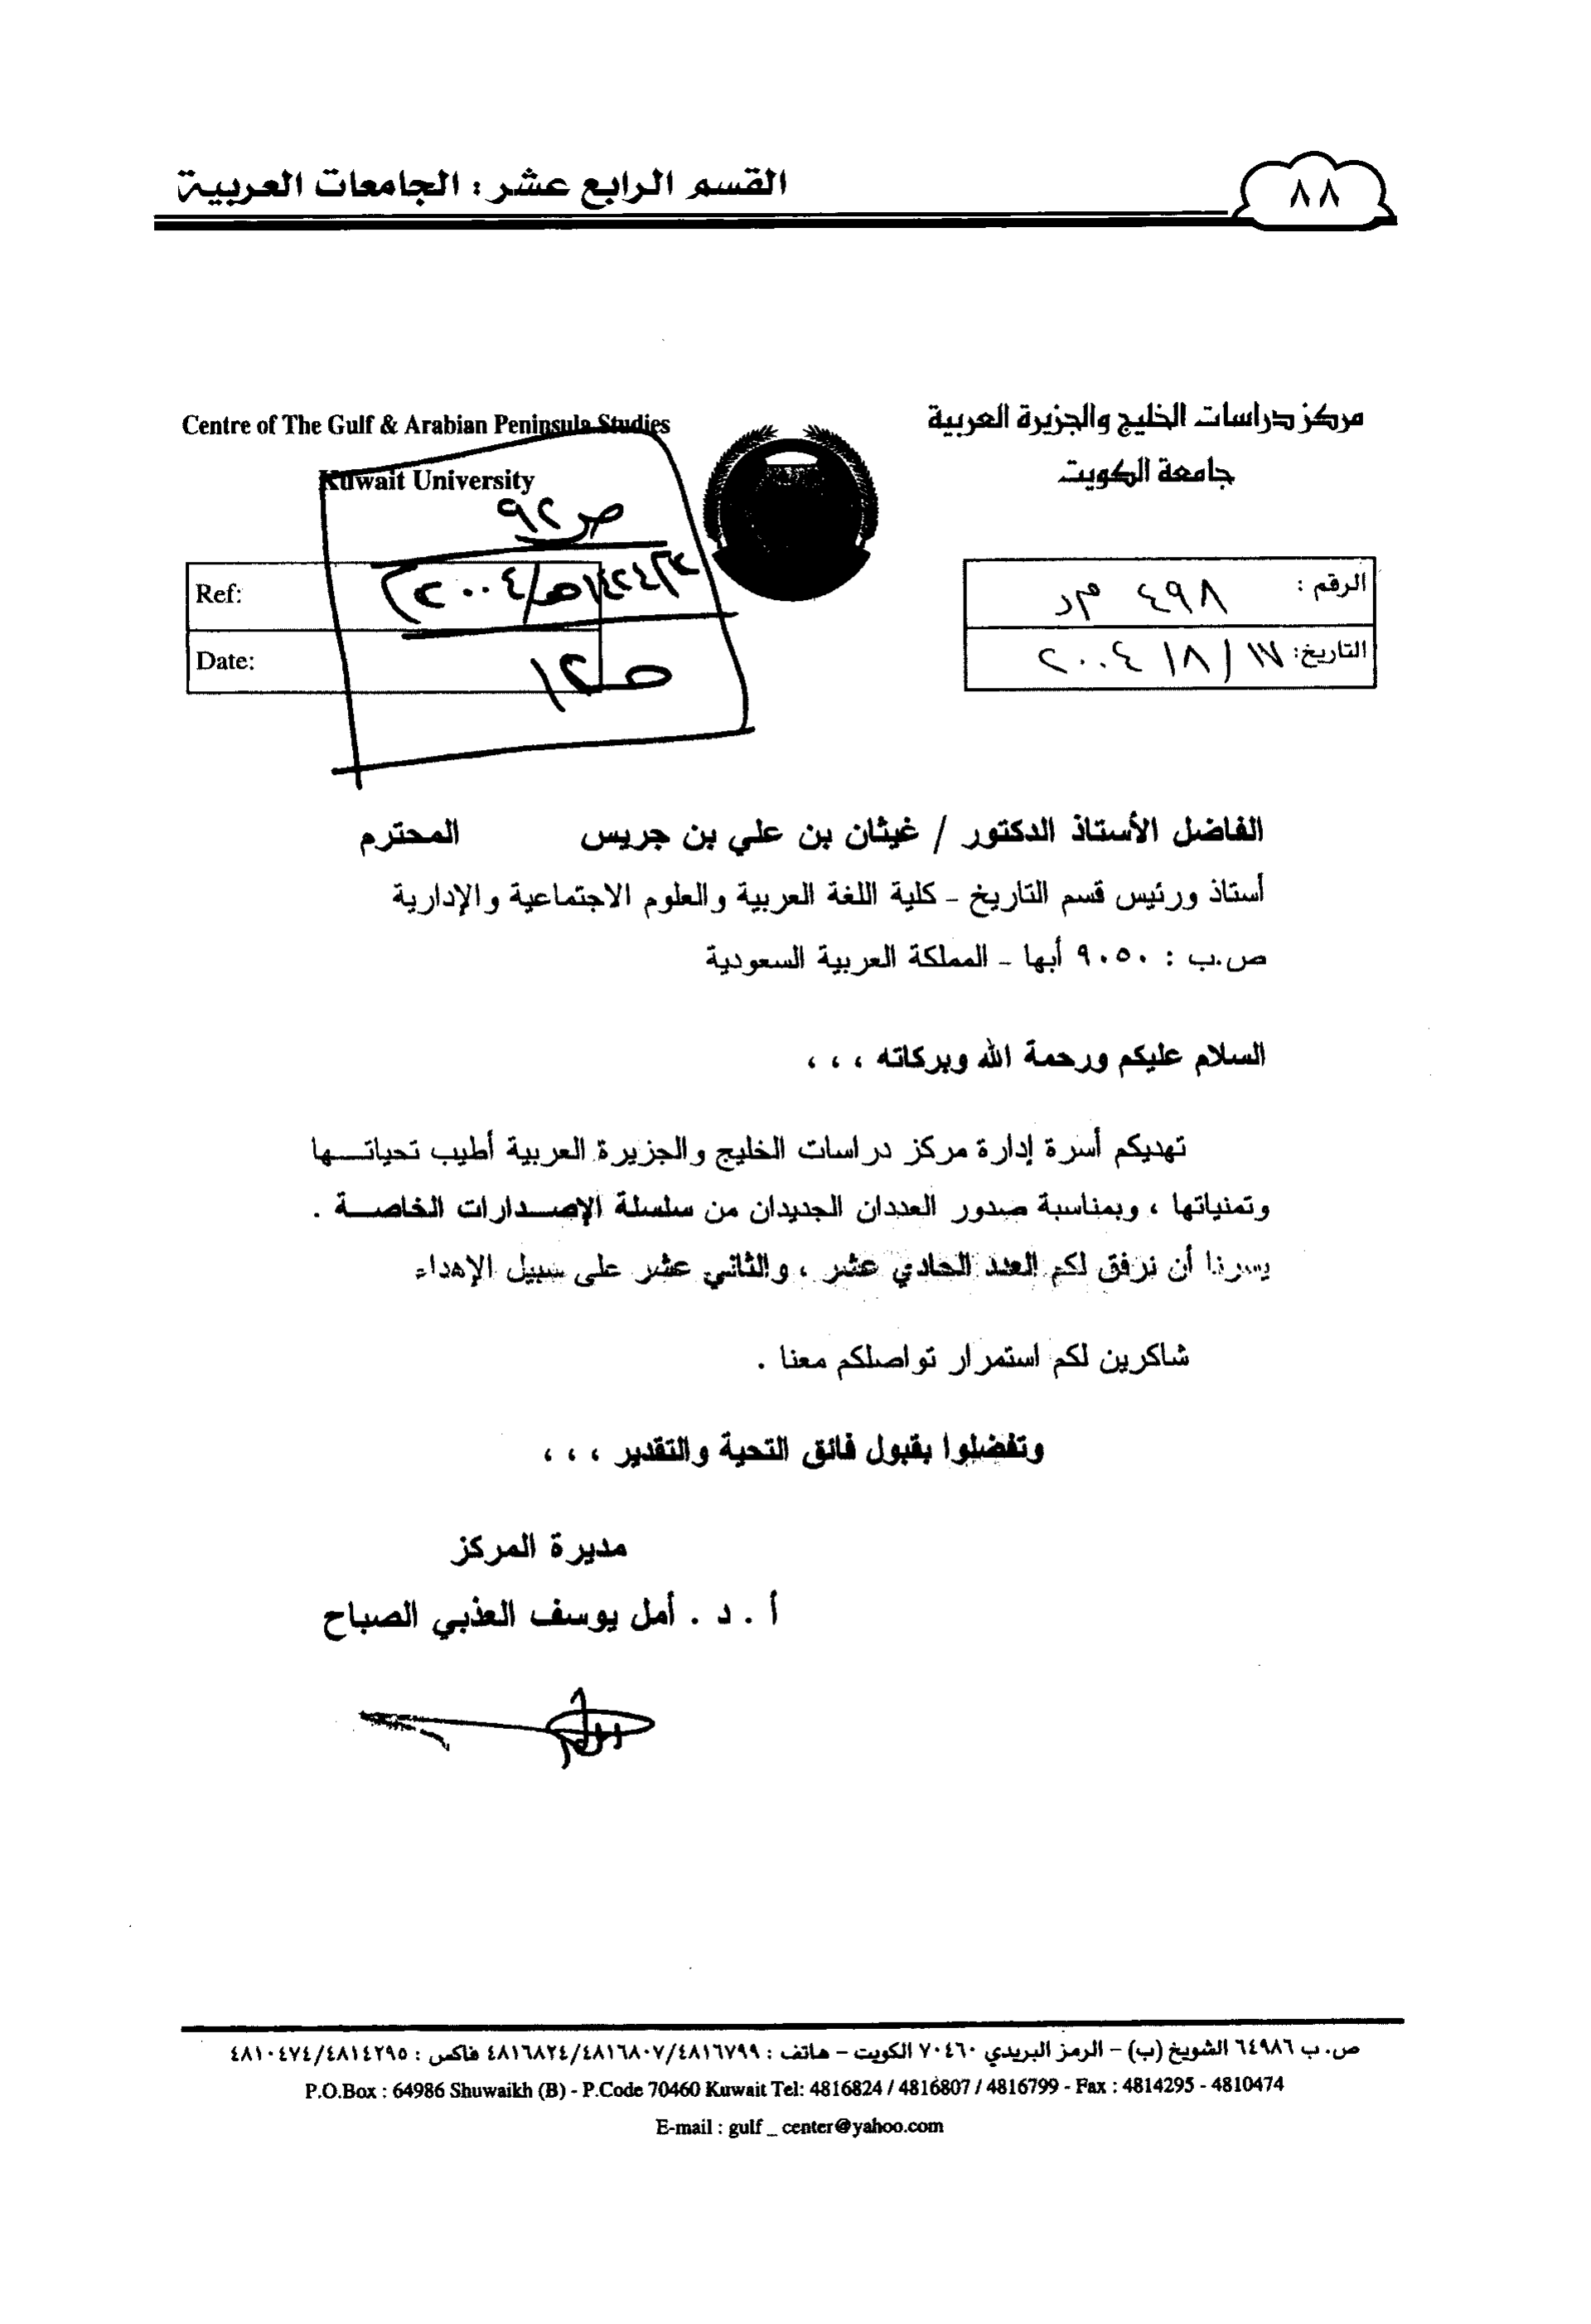 القسم الرابع عشر : الجامعات العربية
٨٨
مركز دراسات الخليج والجزيرة العربية
جامعة الكويت
Centre of The Gulf & Arabian Peninsula Studies
Kuwait University
ص ٩٢
١٤٢٤/٢هـ/٢٠٠٤م
ص ١٢
Ref:
Date:
الرقم : ٤٩٨ م د
التاريخ: ١٧ / ٨ / ٢٠٠٤
الفاضل الأستاذ الدكتور / غيثان بن علي بن جريس المحترم
أستاذ ورئيس قسم التاريخ - كلية اللغة العربية والعلوم الاجتماعية والإدارية
ص.ب : ٩٠٥٠ أبها - المملكة العربية السعودية
السلام عليكم ورحمة الله وبركاته ، ، ،
تهديكم أسرة إدارة مركز دراسات الخليج والجزيرة العربية أطيب تحياتـــها
وتمنياتها ، وبمناسبة صدور العددان الجديدان من سلسلة الإصـــدارات الخاصـــة .
يسرنا أن نرفق لكم العدد الحادي عشر ، والثاني عشر على سبيل الإهداء
شاكرين لكم استمرار تواصلكم معنا .
وتفضلوا بقبول فائق التحية والتقدير ، ، ،
مديرة المركز
أ . د . أمل يوسف العذبي الصباح
ص. ب ٦٤٩٨٦ الشويخ (ب) – الرمز البريدي ٧٠٤٦٠ الكويت – هاتف : ٤٨١٦٨٢٤/٤٨١٦٨٠٧/٤٨١٦٧٩٩ فاكس : ٤٨١٠٤٧٤/٤٨١٤٢٩٥
P.O.Box : 64986 Shuwaikh (B) - P.Code 70460 Kuwait Tel: 4816824 / 4816807 / 4816799 - Fax : 4814295 - 4810474
E-mail : gulf _ center@yahoo.com